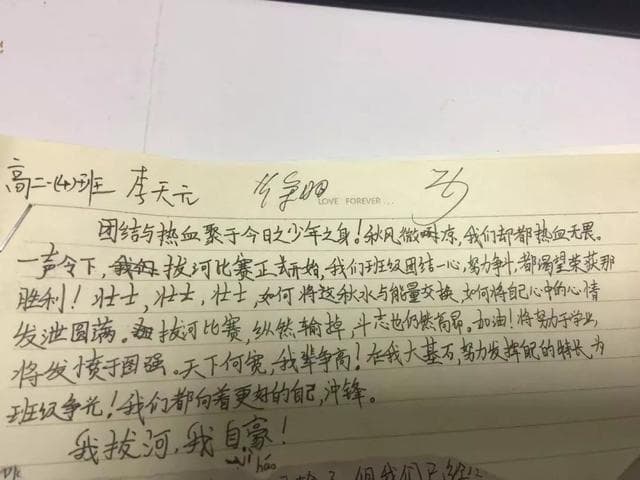 高二·(4)班 李天元
LOVE FOREVER...
团结与热血聚于今日之少年之身！秋风微凉，我们却都热血无畏。
一声令下，拔河比赛正式开始，我们班级团结一心，努力争斗，都渴望荣获那
胜利！壮士，壮士，壮士，如何将这秋水与能量交换，如何将自己心中的心情
发泄圆满。拔河比赛，纵然输掉，斗志也仍然高昂。加油！将努力于学业，
将发愤于图强。天下何宽，我辈争高！在我大基石，努力发挥的特长，为
班级争光！我们都向着更好的自己，冲锋。
我拔河，我自豪！
zì háo
但我们已经